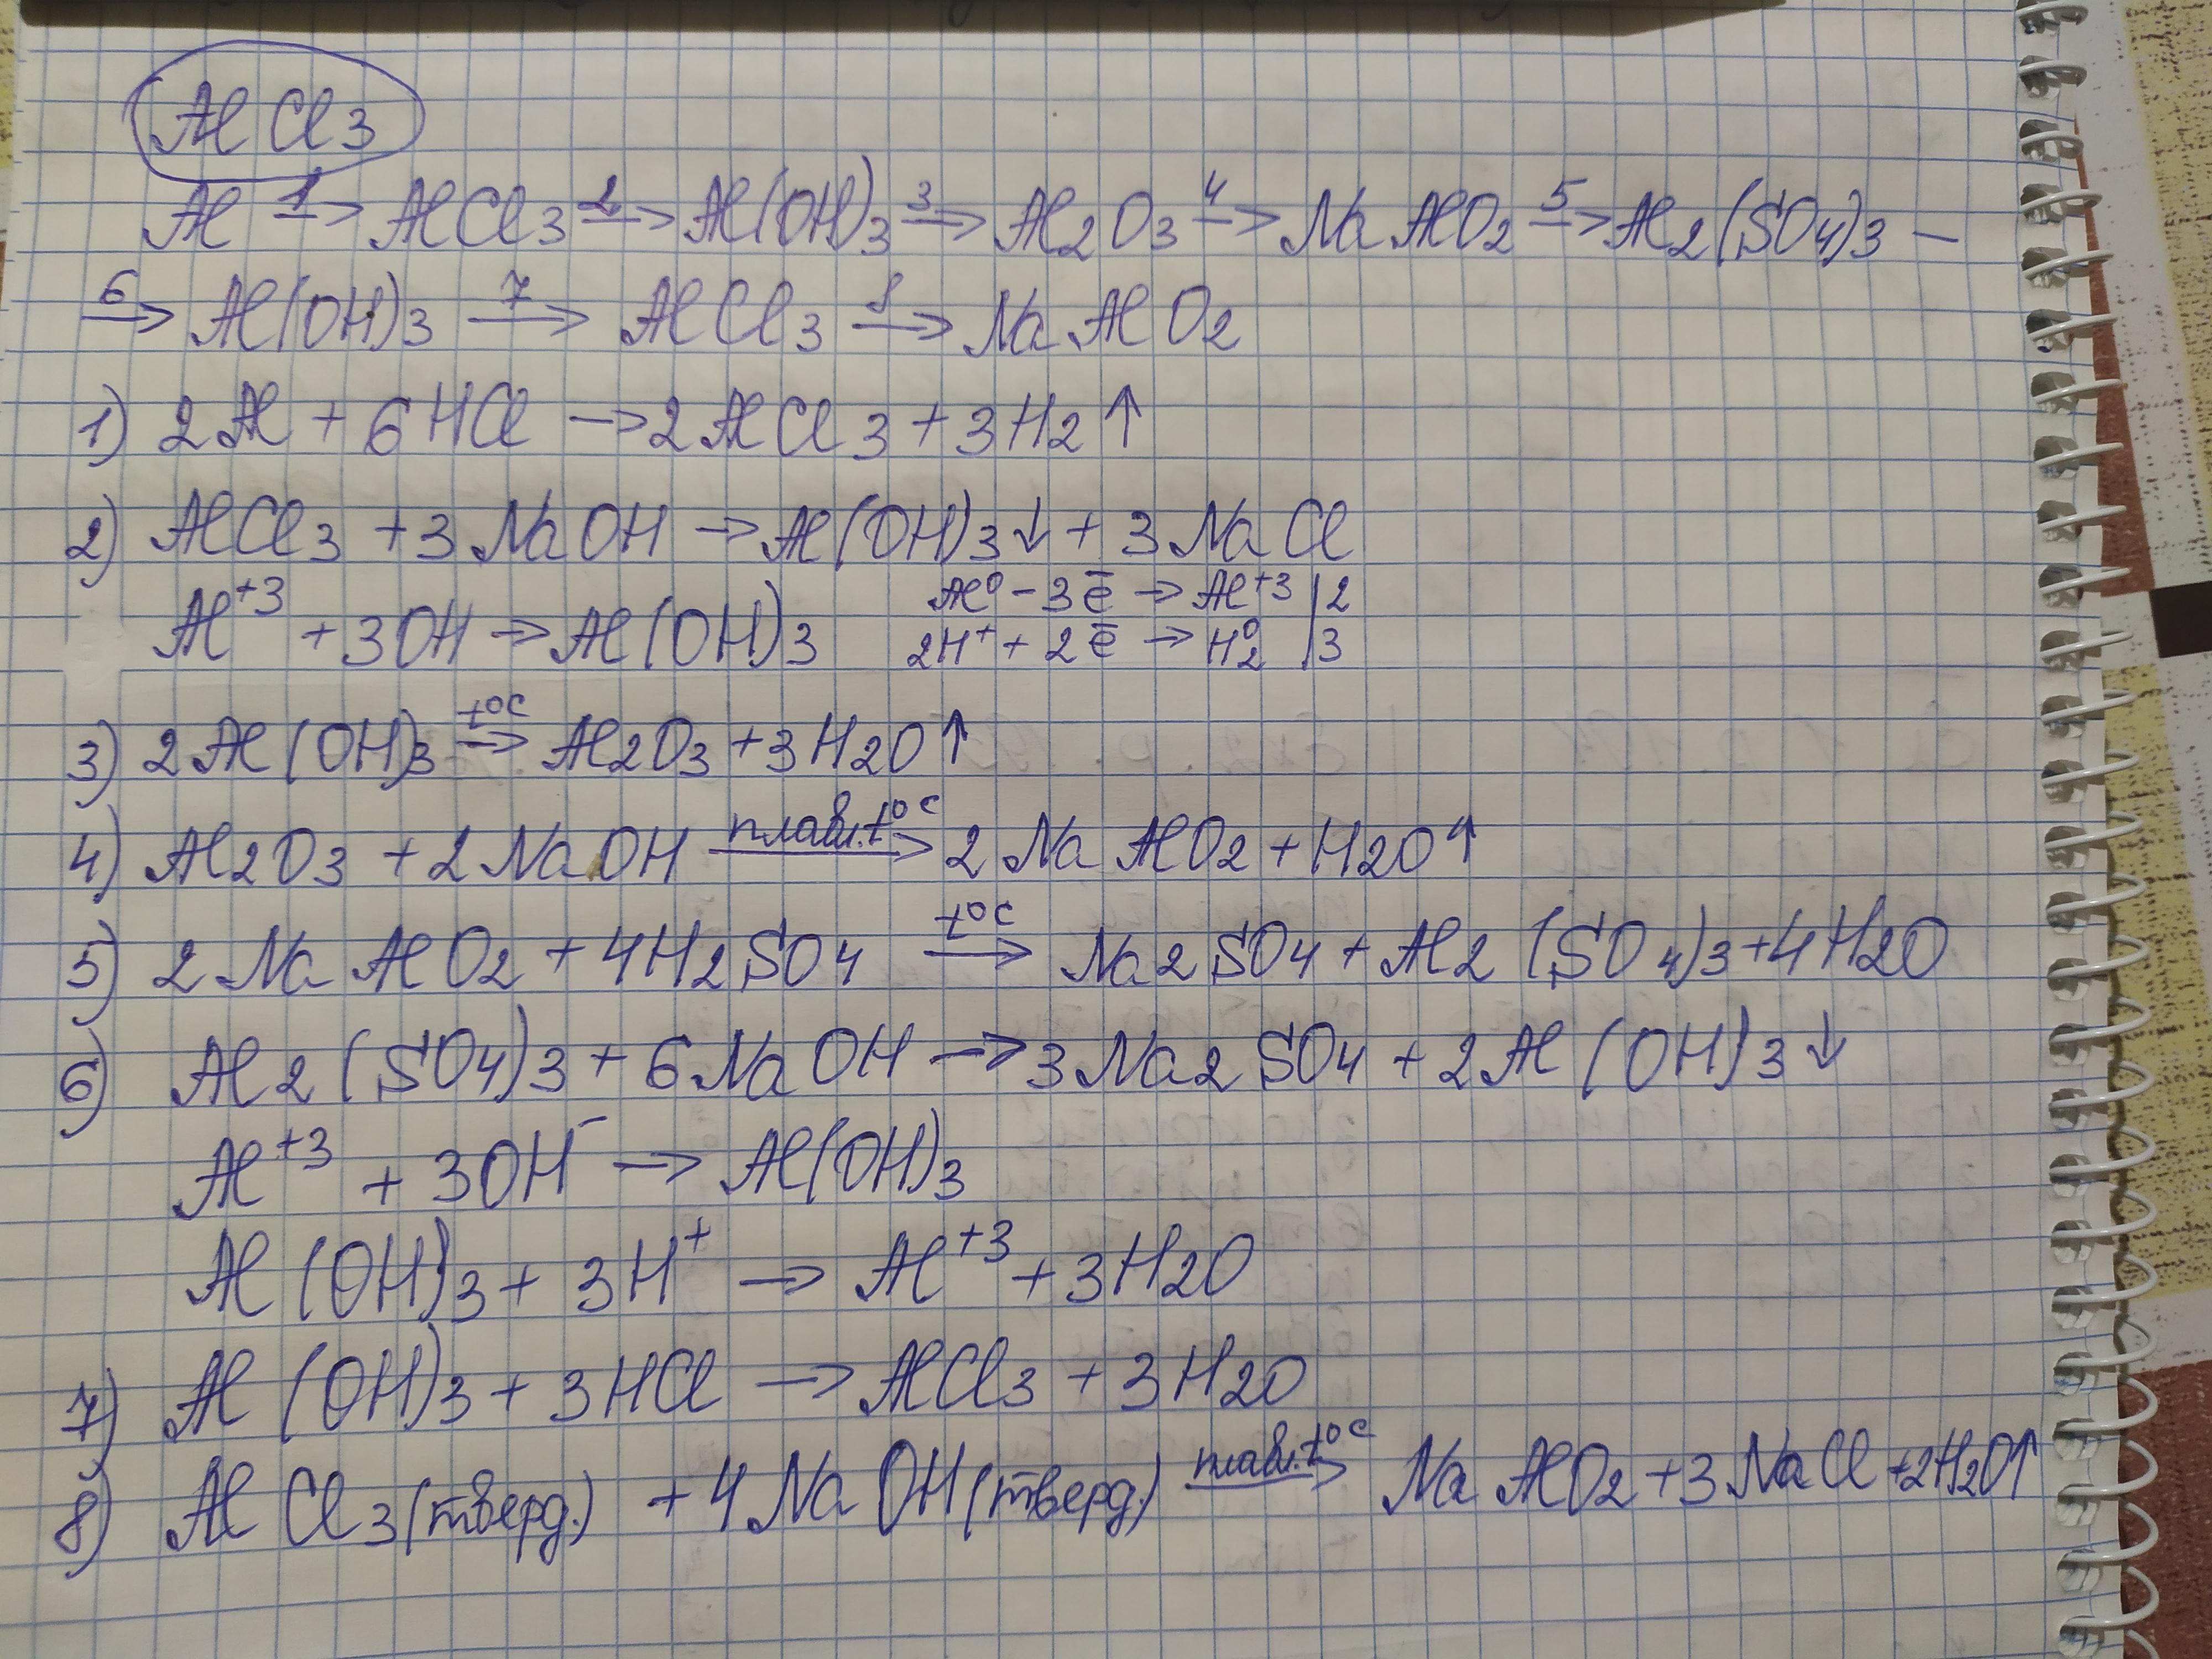 AlCl3
Al 1→ AlCl3 2→ Al(OH)3 3→ Al2O3 4→ NaAlO2 5→ Al2(SO4)3 —
6→ Al(OH)3 7→ AlCl3 8→ NaAlO2
1) 2Al + 6HCl → 2AlCl3 + 3H2↑
2) AlCl3 + 3NaOH → Al(OH)3↓ + 3NaCl
Al+3 + 3OH → Al(OH)3
Al0 - 3ē → Al+3 | 2
2H+ + 2ē → H20 | 3
3) 2Al(OH)3 t°C→ Al2O3 + 3H2O↑
4) Al2O3 + 2NaOH плавл.t°C→ 2NaAlO2 + H2O↑
5) 2NaAlO2 + 4H2SO4 t°C→ Na2SO4 + Al2(SO4)3 + 4H2O
6) Al2(SO4)3 + 6NaOH → 3Na2SO4 + 2Al(OH)3↓
Al+3 + 3OH- → Al(OH)3
Al(OH)3 + 3H+ → Al+3 + 3H2O
7) Al(OH)3 + 3HCl → AlCl3 + 3H2O
8) AlCl3(тверд.) + 4NaOH(тверд.) плавл.t°C→ NaAlO2 + 3NaCl + 2H2O↑